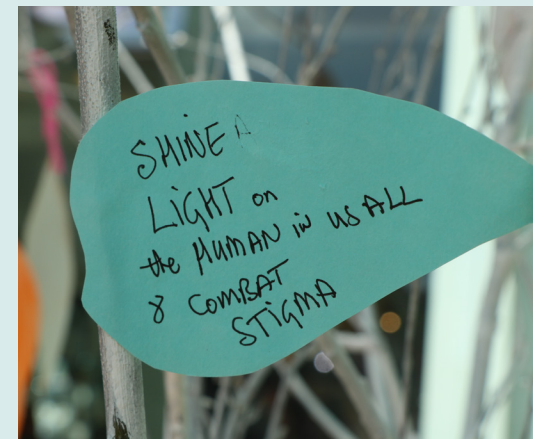 SHINE A
LiGHT on
the HUMAN in us ALL
& COMBAT
STiGMA